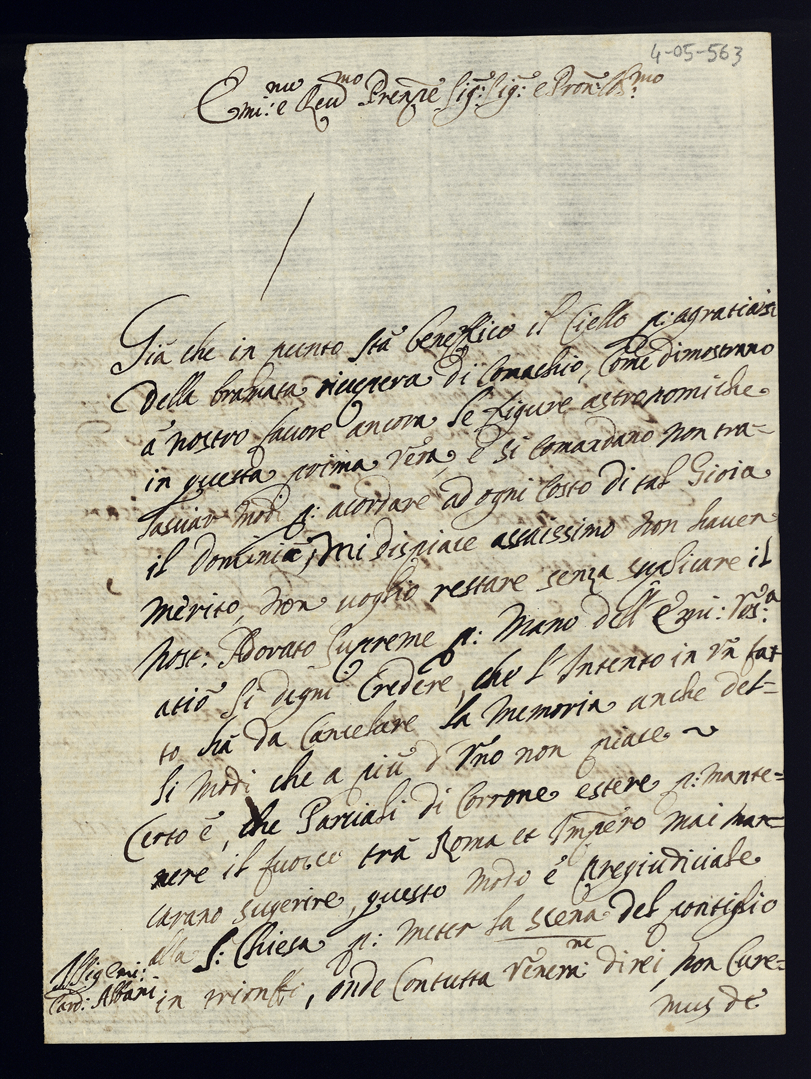 4-05-563
Emi:nce e Reud:mo Prenpe Sig: Sig: e Pron: Col:mo
Già che in punto stà beneffico il Ciello p: agratiarsi
della bramata ricupera di Comachio, Come dimostrano
à nostro favore ancora le figure astronomiche
in questa prima vera, e si comandano non tra=
lasciar modi p: acordare ad ogni costo di tal Gioia
il dominio, Mi dispiace assaissimo non haver
merito, non voglio restare senza suplicare il
Nost: Adorato Supreme p: Mano dell' Emi: Vos:a
atiò si degni Credere, che l'Intento in un fat
to hà da Cancelare la Memoria anche del=
li Modi che a più d'uno non piace ~
Certo è, che Parciali di Corrone estere p: mante=
nere il fuoco trà Roma et Impero mai man=
carano sugerire, questo modo è pregiudiciale
alla S: Chiesa p: meter la scena del contiglio
in trionffi, onde Contutta Venera:ne direi non Cure=
mus de
All Sig Emi:
Card: Albani